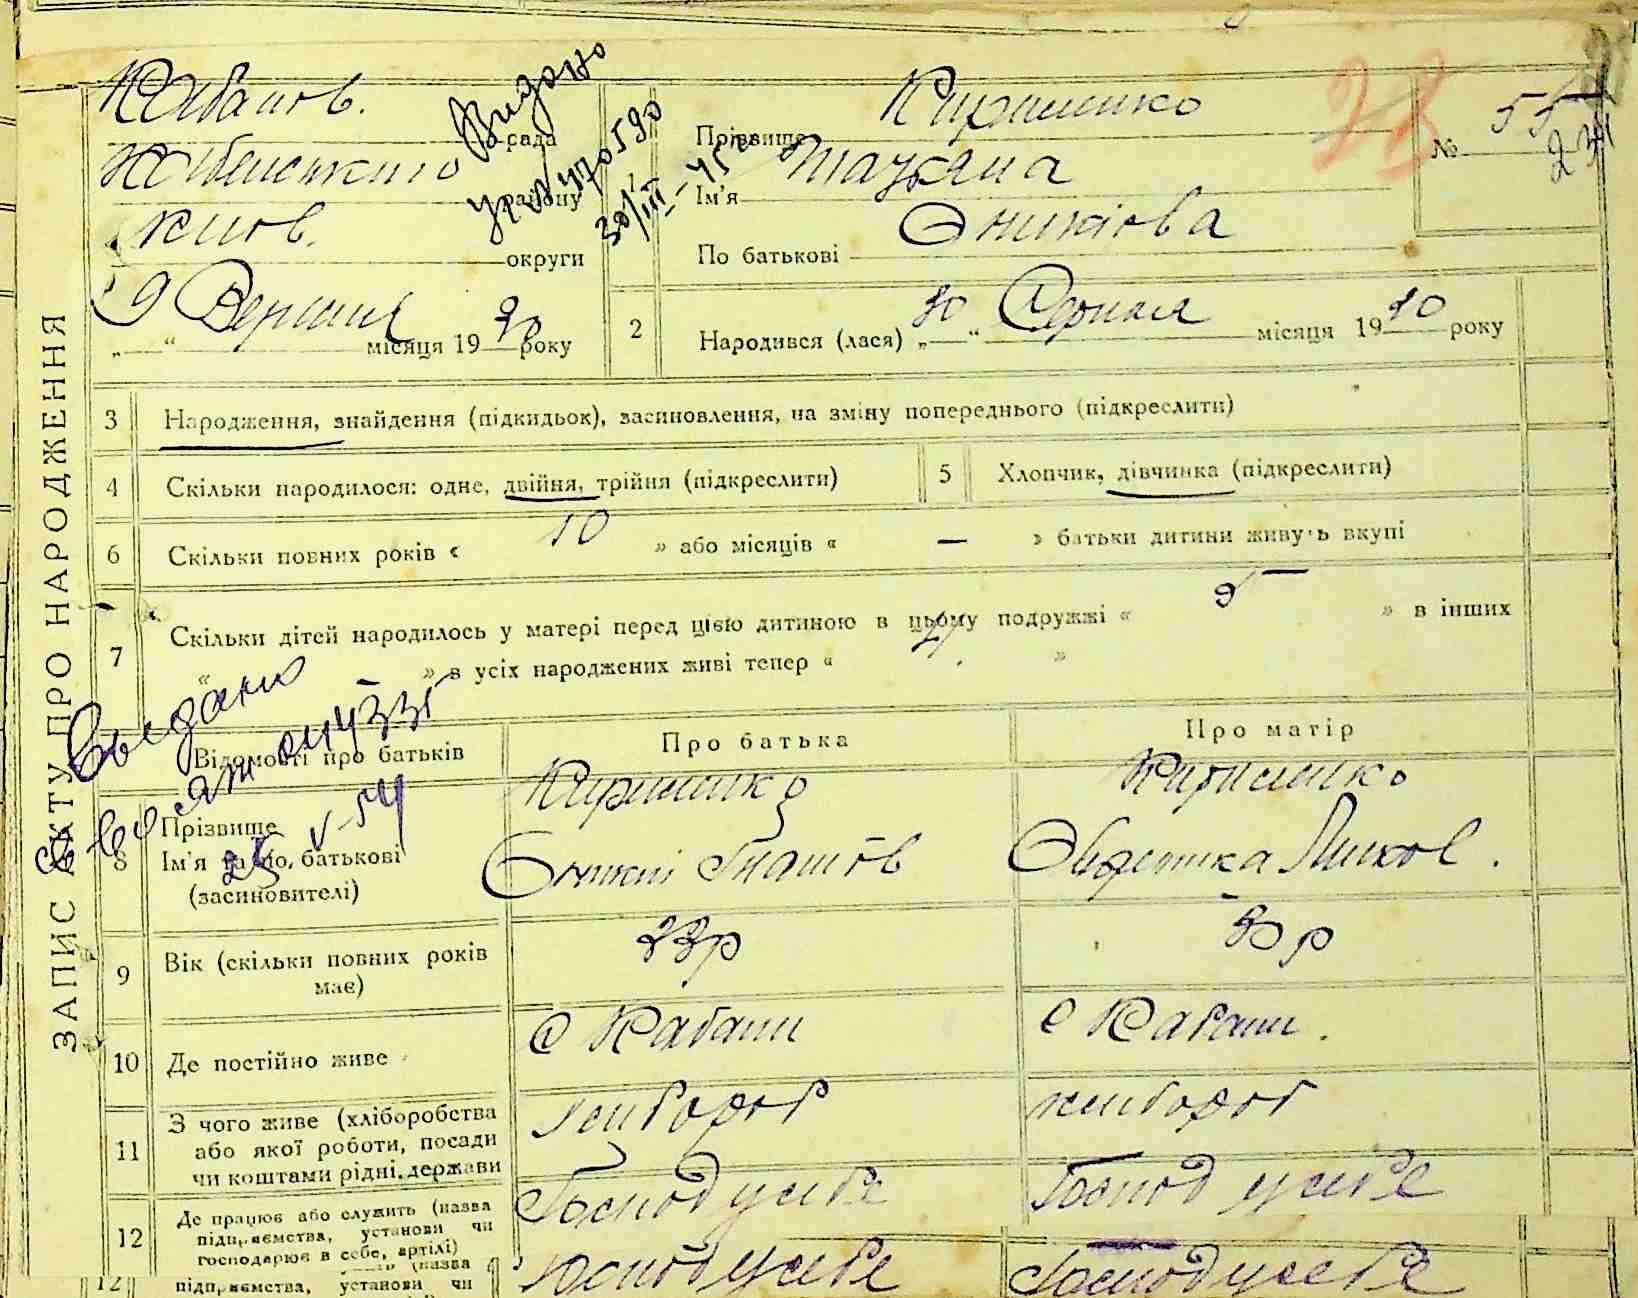 ЗАПИС АКТУ ПРО НАРОДЖЕННЯ
Кабанов. рада
району
Київ. округи
9 Вересня місяця 19 року
Видано
30/III-45
Прізвище Кириленко
Ім'я Татяна
По батькові Оникіёва
№ 55
28
2 Народився (лася) „30“ Серпня місяця 19 року
3 Народження, знайдення (підкидьок), засиновлення, на зміну попереднього (підкреслити)
4 Скільки народилося: одне, двійня, трійня (підкреслити)
5 Хлопчик, дівчинка (підкреслити)
6 Скільки повних років « 10 » або місяців « — » батьки дитини живуть вкупі
7 Скільки дітей народилось у матері перед цією дитиною в цьому подружжі « » в інших
« » в усіх народжених живі тепер « »
Відомості про батьків
Про батька
Про матір
8 Прізвище
Ім'я та по батькові
(засиновителі)
Кириленко
Оникій Гнатов
Кириленко
9 Вік (скільки повних років
має)
10 Де постійно живе
с Кабани
с Кабани.
11 З чого живе (хліборобства
або якої роботи, посади
чи коштами рідні, держави
хлібороб
хлібороб
12 Де працює або служить (назва
підприємства, установи чи
господарює в себе, артілі)
Господ у себе
Господ у себе
12 (назва
підприємства, установи чи
Господ у себе
Господ у себе